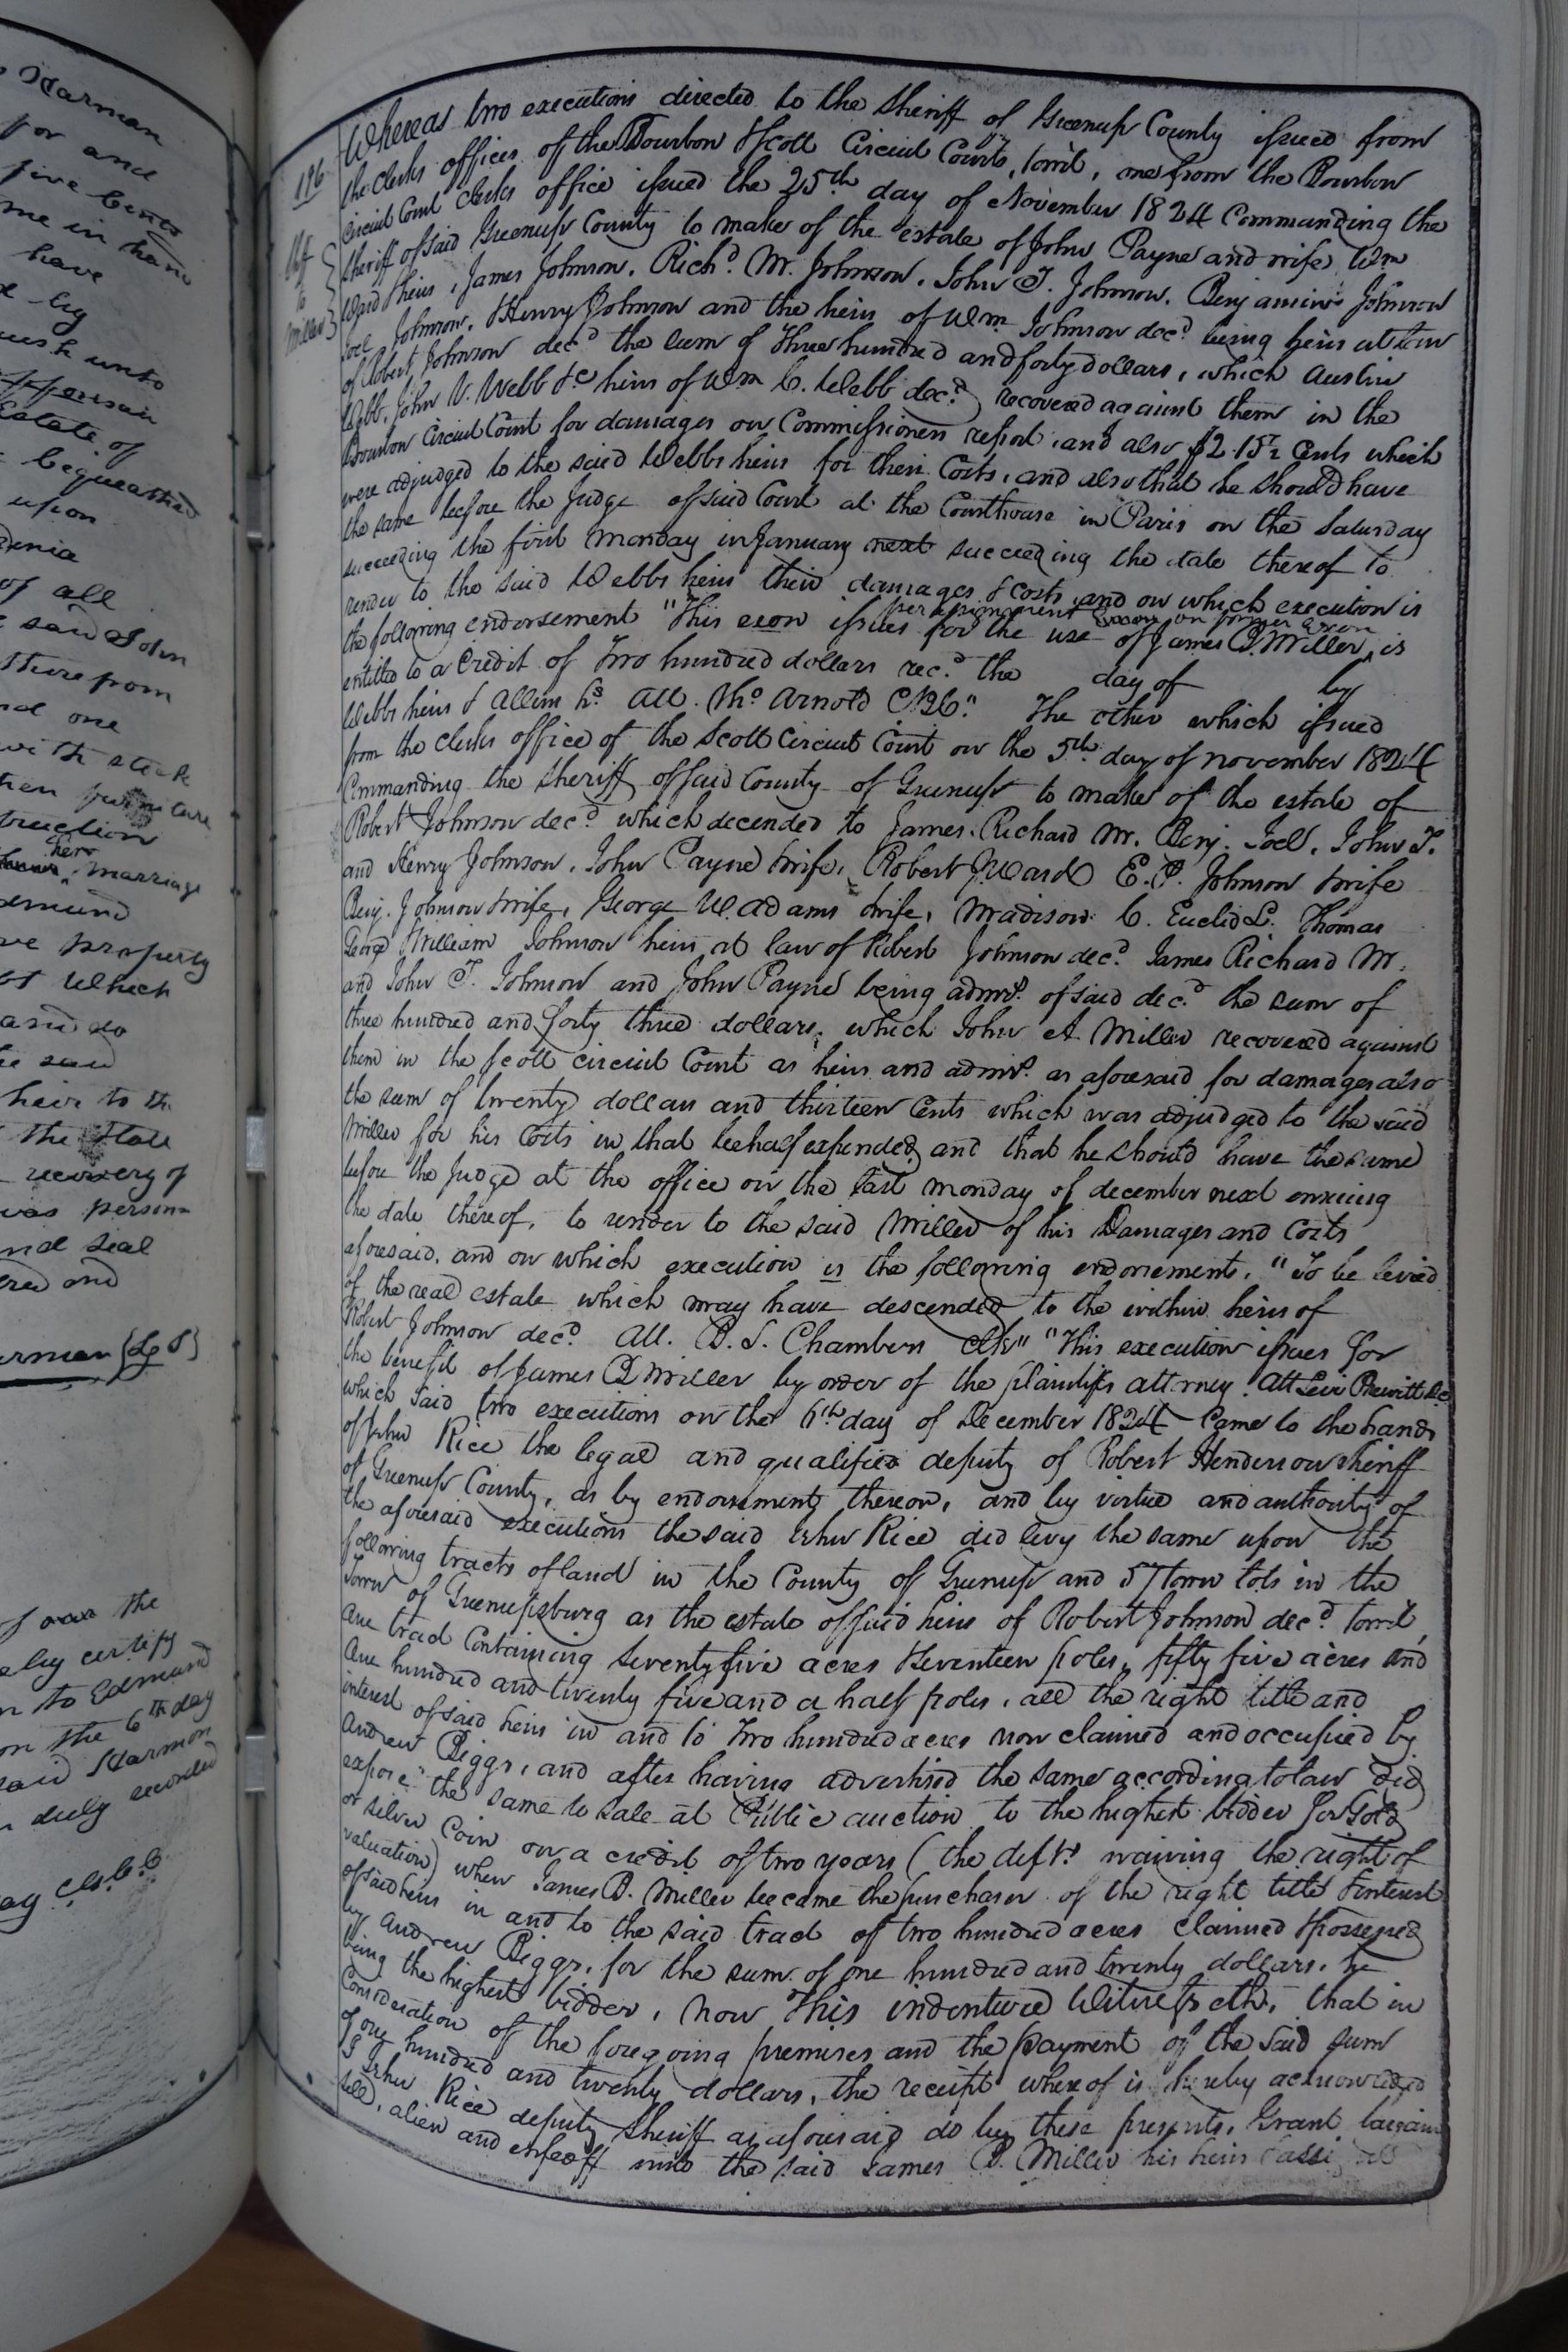 Harman
for and
five Cents
me in hand
have
by
unto
Estate of
bequeathed
upon
of all
said John
therefrom
and one
with
truction
her
marriage
Edmund
property
of Which
and do
the said
heir to the
the State
recovery of
was person-
and Seal
and
{L S}
was the
certify
to Edmund
on the 6th day
said Harmon
duly recorded
196
Shff
to
Miller
Whereas two executions directed to the Sheriff of Greenup County issued from
the clerks offices of the Bourbon & Scott Circuit Courts, towit, one from the Bourbon
Circuit Court Clerks office issued the 25th day of November 1824 Commanding the
Sheriff of said Greenup County to make of the estate of John Payne and wife, Wm
Ward & heirs, James Johnson, Richd. M. Johnson, John T. Johnson, Benjamin Johnson
Joel Johnson, Henry Johnson and the heirs of Wm Johnson decd. being heirs at law
of Robert Johnson decd. the sum of Three hundred and forty dollars, which Austin
Webb, John V. Webb &c heirs of Wm C. Webb decd. recovered against them in the
Bourbon Circuit Court for damages on Commissioners report, and also $2.15½ Cents which
were adjudged to the said Webbs heirs for their Costs, and also that he should have
the same before the Judge of said Court at the Courthouse in Paris on the Saturday
succeeding the first Monday in January next succeeding the date thereof to
render to the said Webbs heirs their damages & costs, and on which execution is
per on former Exon
the following endorsement "This exon issues for the use of James B. Miller, is
entitled to a Credit of Two hundred dollars recd. the day of by
Webbs heirs & Att. Tho Arnold The other which issued
from the clerks office of the Scott Circuit Court on the 5th day of November 1824
Commanding the Sheriff of said County of Greenup to make of the estate of
Robert Johnson decd. which decended to James, Richard M. Benj. Joel, John T.
and Henry Johnson, John Payne & wife, Robert J. Ward E. P. Johnson & wife
Benj. Johnson & wife, George W. Adams & wife, Madison C. Euclid L. Thomas
George William Johnson heirs at law of Robert Johnson decd. James Richard M.
and John T. Johnson and John Payne being admrs. of said decd. the sum of
three hundred and forty three dollars, which John A. Miller recovered against
them in the Scott circuit Court as heirs and admrs. as aforesaid for damages also
the sum of twenty dollars and thirteen Cents which was adjudged to the said
Miller for his Costs in that behalf expended, and that he should have the same
before the Judge at the office on the last Monday of december next ensuing
the date thereof, to render to the said Miller of his Damages and Costs
aforesaid, and on which execution is the following endorsement, "To be levied
of the real estate which may have descended to the within heirs of
Robert Johnson decd. Att. B. S. Chambers Clk" "This execution issues for
the benefit of James B Miller by order of the plaintiffs attorney. Att Levi Prewitt Dc
which said two executions on the 6th day of December 1824 Came to the hands
of John Rice the legal and qualified deputy of Robert Henderson Sheriff
of Greenup County, as by endorsments thereon, and by virtue and authority of
the aforesaid executions the said John Rice did levy the same upon the
following tracts of land in the County of Greenup and 57 Town lots in the
Town of Greenupsburg as the estate of said heirs of Robert Johnson decd. towit,
One tract Containing Seventy five acres & Seventeen poles, fifty five acres and
One hundred and twenty five and a half poles, all the right title and
interest of said heirs in and to Two hundred acres now claimed and occupied by
Andrew Biggs, and after having advertised the same according to law did
expose the same to sale at Public auction to the highest bidder for Gold
or silver Coin on a credit of two years (the defts. waiving the right of
valuation) when James B. Miller became the purchaser of the right title & interest
of said heirs in and to the said tract of two hundred acres claimed & possessed
by Andrew Biggs, for the sum of one hundred and twenty dollars, he
being the highest bidder, Now This indenture Witnesseth, that in
Consideration of the foregoing premises and the payment of the said sum
of one hundred and twenty dollars, the receipt whereof is hereby acknowledged
I John Rice deputy Sheriff as aforesaid do by these presents, Grant bargain
sell, alien and enfeoff unto the said James B. Miller his heirs